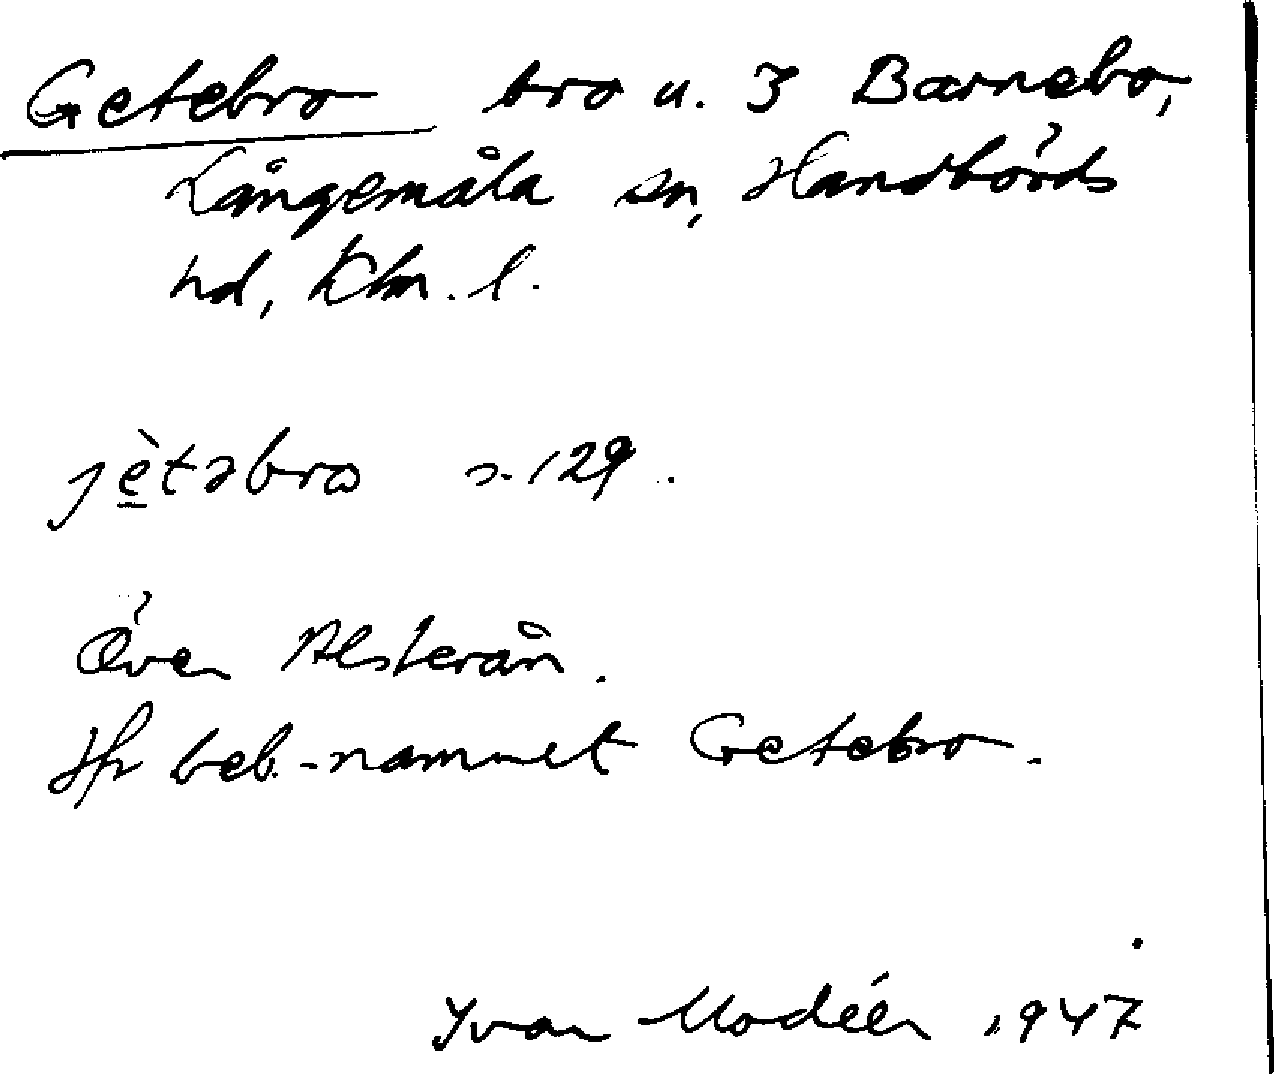 Getebro bro u. 3 Barnebo,
Långemåla sn, Handbörds
hd, Klm. l.
jètəbro s. 129.
Över Alsterån.
Jfr beb.-namnet Getebro.
Yvan Modéer 1947